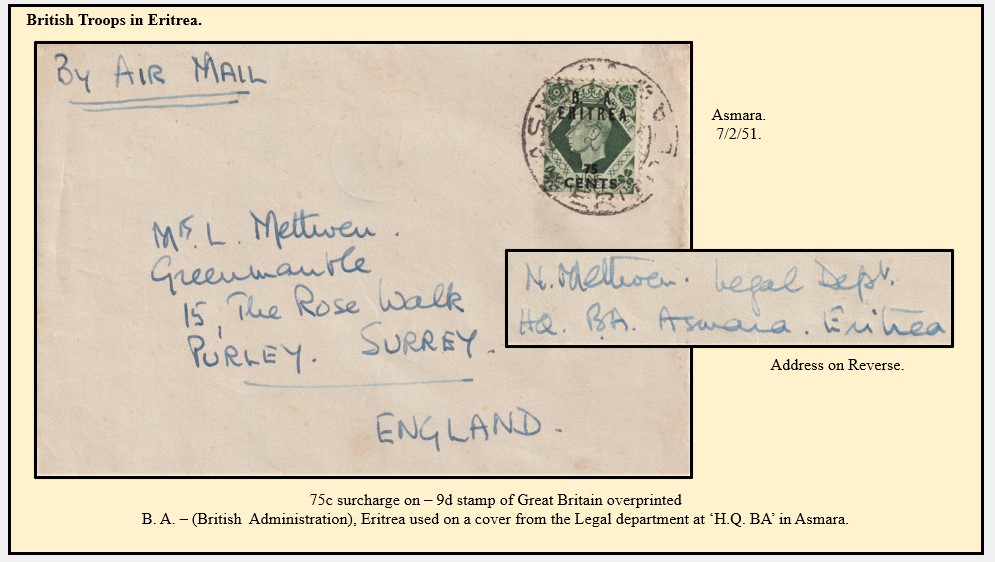 British Troops in Eritrea.
By AIR MAIL
B. A.
ERITREA
75
CENTS
Asmara.
7/2/51.
Mr. L. Methven.
Greenmantle
15, The Rose Walk
PURLEY. SURREY.
ENGLAND.
N. Methven. Legal Dept.
HQ. BA. Asmara. Eritrea
Address on Reverse.
75c surcharge on – 9d stamp of Great Britain overprinted
B. A. – (British Administration), Eritrea used on a cover from the Legal department at ‘H.Q. BA’ in Asmara.